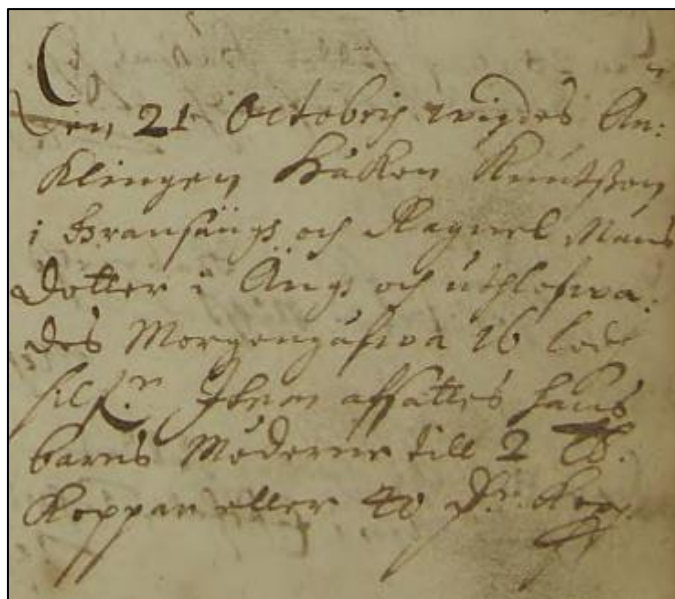 Den 21 Octobris wigdes Än:
klingen Håkan Knutsson
i Bransäng och Ragnel Måns
dotter i Äng, och uthlofwa:
des Morgongåfwa 16 lod
silf:r Item affsattes hans
barns Möderne till 2 
Koppar eller 40 D:r Kop: